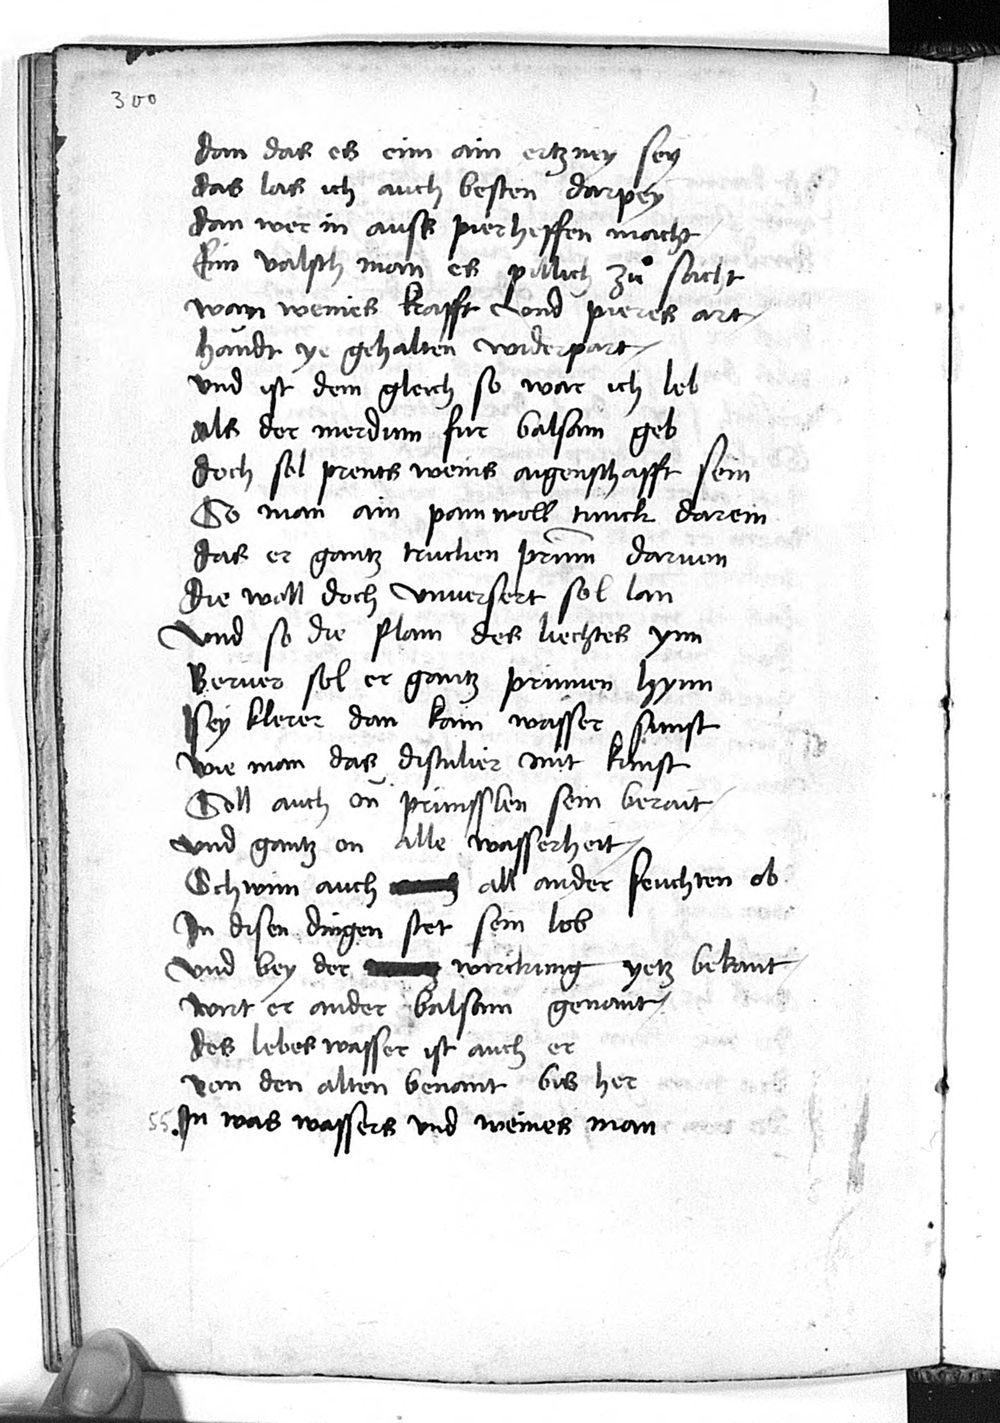 300
dan das es eim ain ertzney sey
das las ich auch besten darpey
dan wer in auss pierheffen macht
Ein valsch man es pillich zů sacht
wan weines krafft vnd pieres art
handt ye gehalten widerpart
vnd ist dem gleich so war ich leb
als der merdum fur balsam geb
doch sol prents weins aigenschafft sein
So man ain pamwoll tunck darein
das er gantz trucken prinn daruon
die woll doch vnuersert sol lan
Vnd so die flam des liechtes ynn
Beruer sol er gantz prinnen hynn
Sey klerer dan kain wasser sunst
wie man das distilier mit kunst
Soll auch on prinsslen sein berait
vnd gantz on alle wasserheit
Schwim auch all ander feuchten ob
In disen dingen stet sein lob
vnd bey der wirckung yetz bekant
wirt er ander balsam genant
des lebes wasser ist auch er
von den alten benant bis her
55. In was wassers vnd weines man